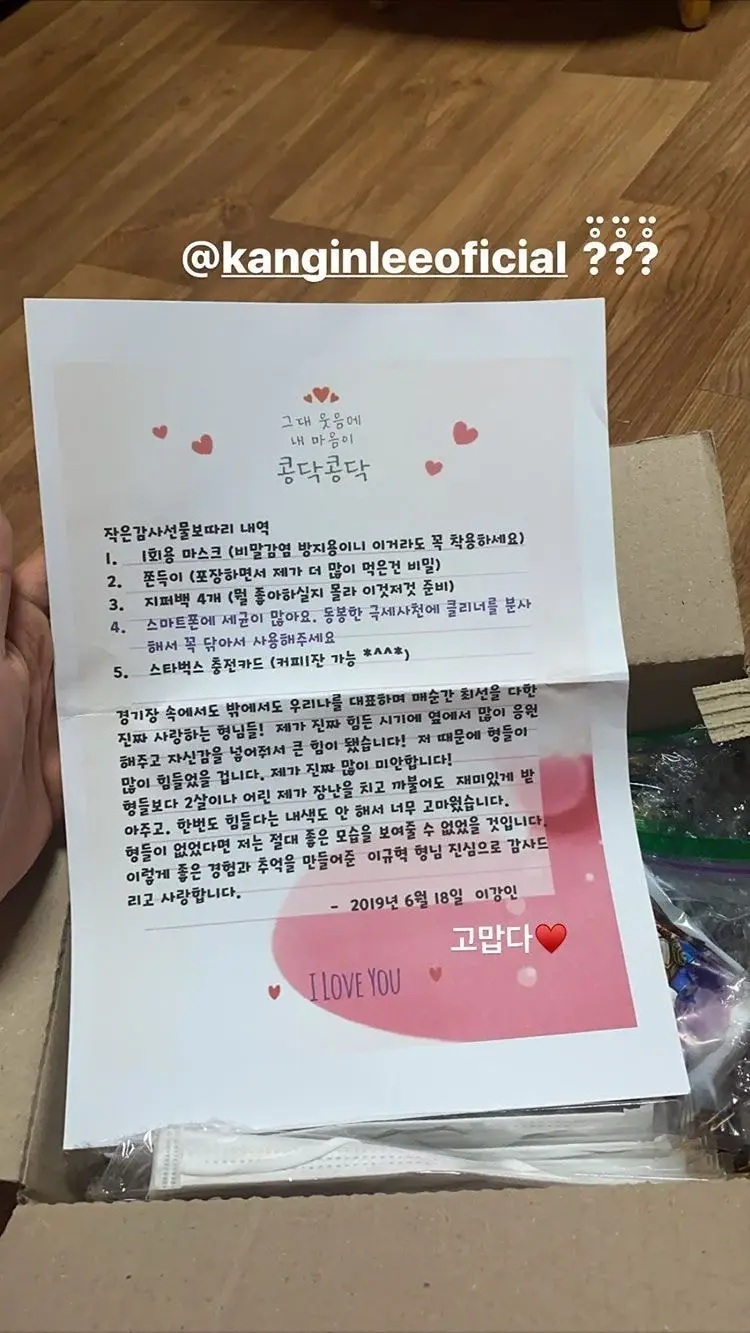 @kanginleeoficial ???
그대 웃음에
내 마음이
콩닥콩닥
작은감사선물보따리 내역
1. 1회용 마스크 (비말감염 방지용이니 이거라도 꼭 착용하세요)
2. 쫀득이 (포장하면서 제가 더 많이 먹은건 비밀)
3. 지퍼백 4개 (뭘 좋아하실지 몰라 이것저것 준비)
4. 스마트폰에 세균이 많아요. 동봉한 극세사천에 클리너를 분사
해서 꼭 닦아서 사용해주세요
5. 스타벅스 충전카드 (커피1잔 가능 *^^*)
경기장 속에서도 밖에서도 우리나를 대표하며 매순간 최선을 다한
진짜 사랑하는 형님들! 제가 진짜 힘든 시기에 옆에서 많이 응원
해주고 자신감을 넣어줘서 큰 힘이 됐습니다! 저 때문에 형들이
많이 힘들었을 겁니다. 제가 진짜 많이 미안합니다!
형들보다 2살이나 어린 제가 장난을 치고 까불어도 재미있게 받
아주고. 한번도 힘들다는 내색도 안 해서 너무 고마웠습니다.
형들이 없었다면 저는 절대 좋은 모습을 보여줄 수 없었을 것입니다.
이렇게 좋은 경험과 추억을 만들어준 이규혁 형님 진심으로 감사드
리고 사랑합니다.
- 2019년 6월 18일 이강인
고맙다♥
I LOVE YOU